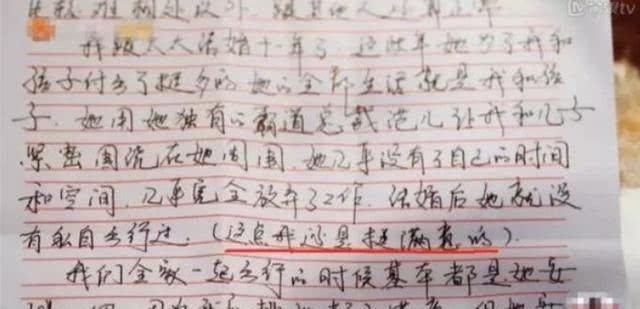 我跟太太结婚十年了，这些年她为了我和
孩子付出了挺多的，她的全部生活就是我和孩
子，她用她独有的霸道总裁范儿让我和儿子
紧密围绕在她周围，她几乎没有了自己的时间
和空间，几乎完全放弃了工作，结婚后她就没
有私自出行过。（这点我还是挺满意的）
我们全家一起出行的时候基本都是她安